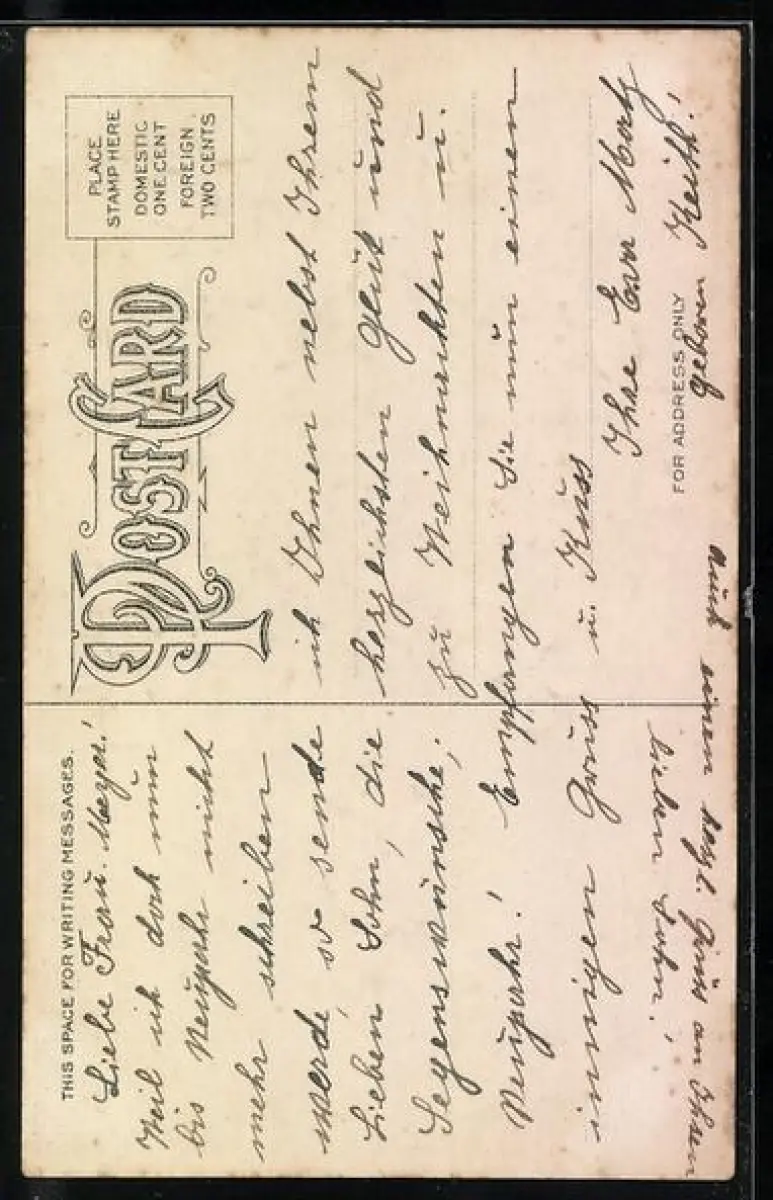 THIS SPACE FOR WRITING MESSAGES.
POST CARD
PLACE
STAMP HERE
DOMESTIC
ONE CENT
FOREIGN
TWO CENTS
Liebe Frau. Meyer!
Weil ich doch nun
bis Neujahr nicht
mehr schreiben
werde, so sende ich Ihnen nebst Ihrem
Lieben Sohn, die herzlichsten Glük und
Segenswünsche, zu Weihnachten u.
Neujahr! Empfangen Sie nun einen
innigen Gruss u. Kuss
Ihre Eva Motz
geboren Keith!
FOR ADDRESS ONLY
auch einen herzl. Gruss an Ihren
lieben Sohn!